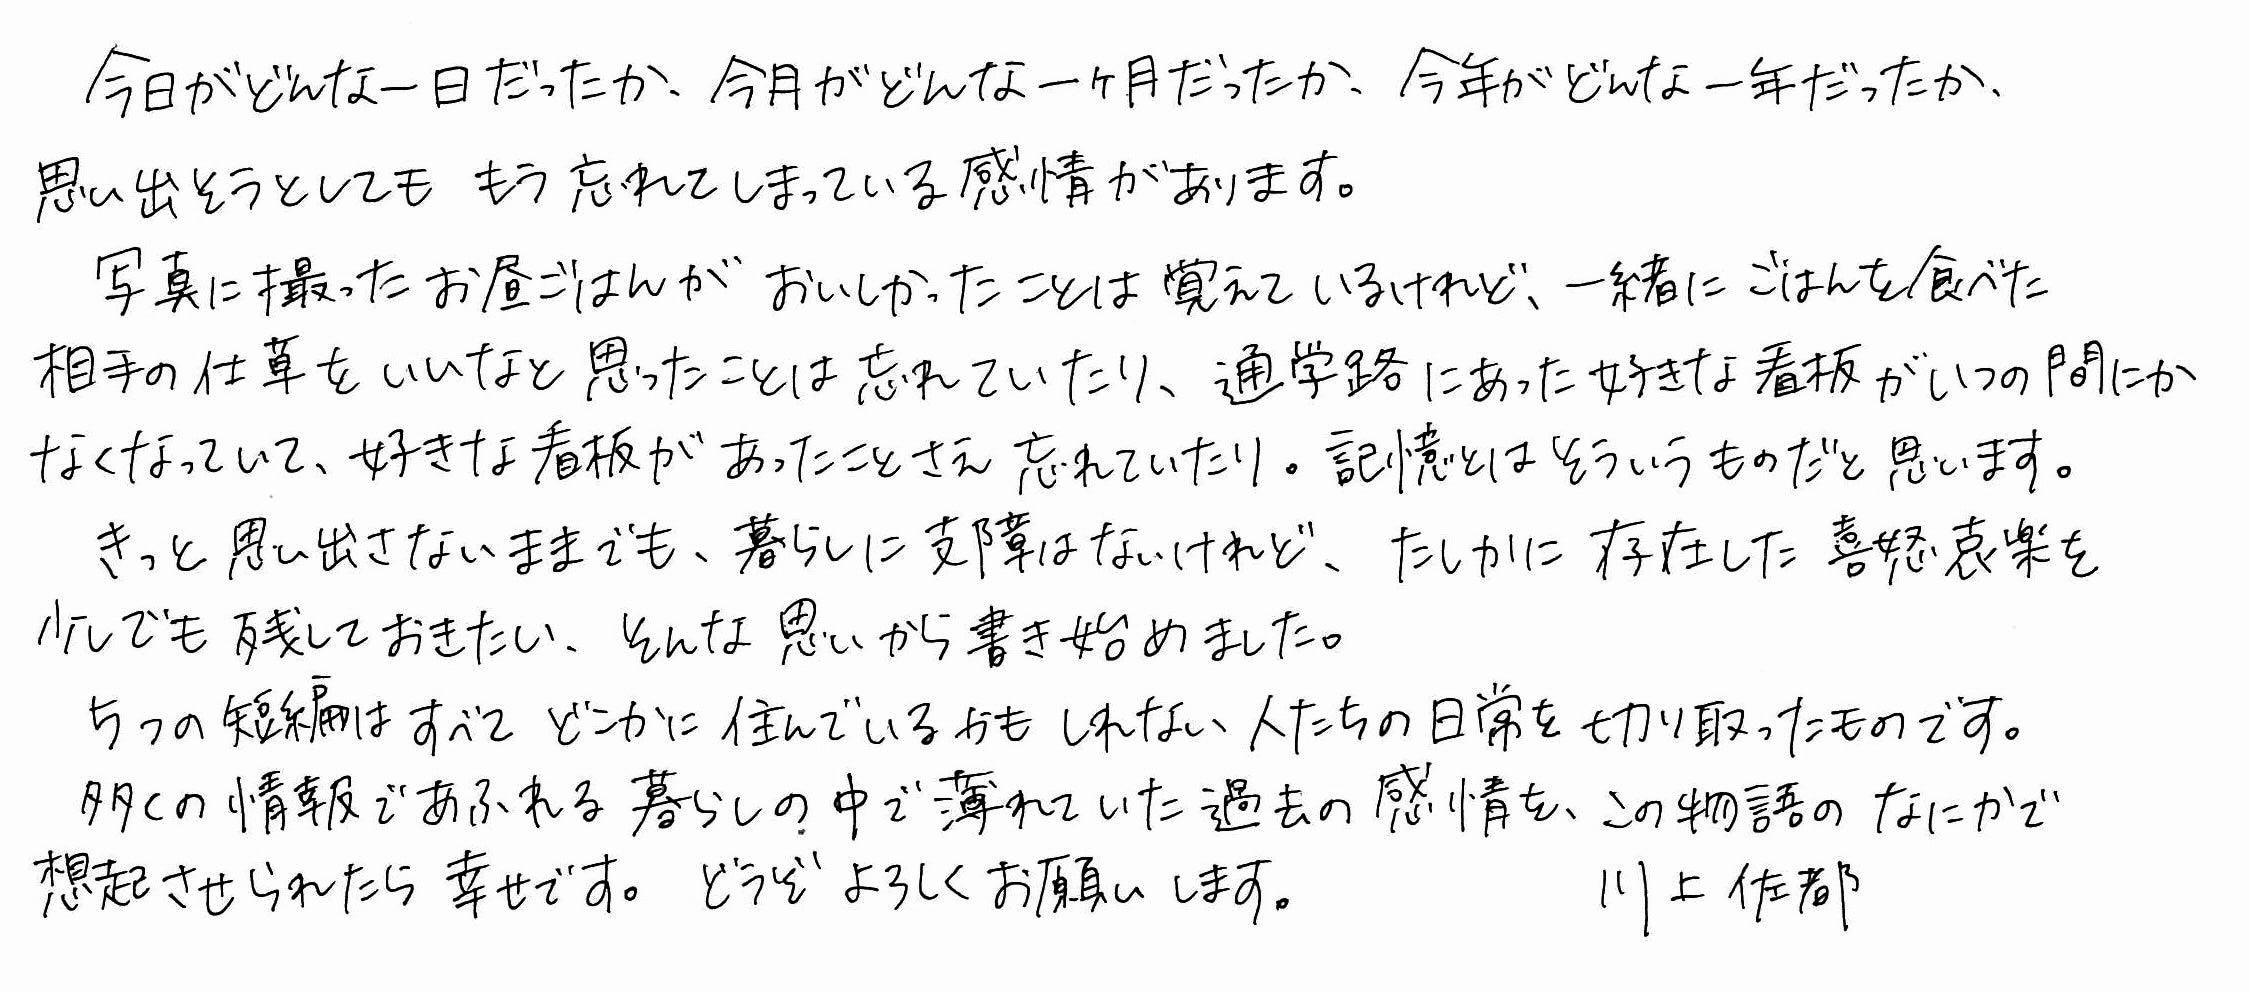 今日がどんな一日だったか、今月がどんな一ヶ月だったか、今年がどんな一年だったか、
思い出そうとしても もう忘れてしまっている感情があります。
写真に撮ったお昼ごはんが おいしかったことは覚えているけれど、一緒にごはんを食べた
相手の仕草をいいなと思ったことは忘れていたり、通学路にあった好きな看板がいつの間にか
なくなっていて、好きな看板があったことさえ忘れていたり。記憶とはそういうものだと思います。
きっと思い出さないままでも、暮らしに支障はないけれど、たしかに存在した喜怒哀楽を
少しでも残しておきたい、そんな思いから書き始めました。
5つの短編はすべて どこかに住んでいるかもしれない人たちの日常を切り取ったものです。
多くの情報であふれる暮らしの中で薄れていた過去の感情を、この物語のなにかで
想起させられたら幸せです。どうぞよろしくお願いします。 川上佐都